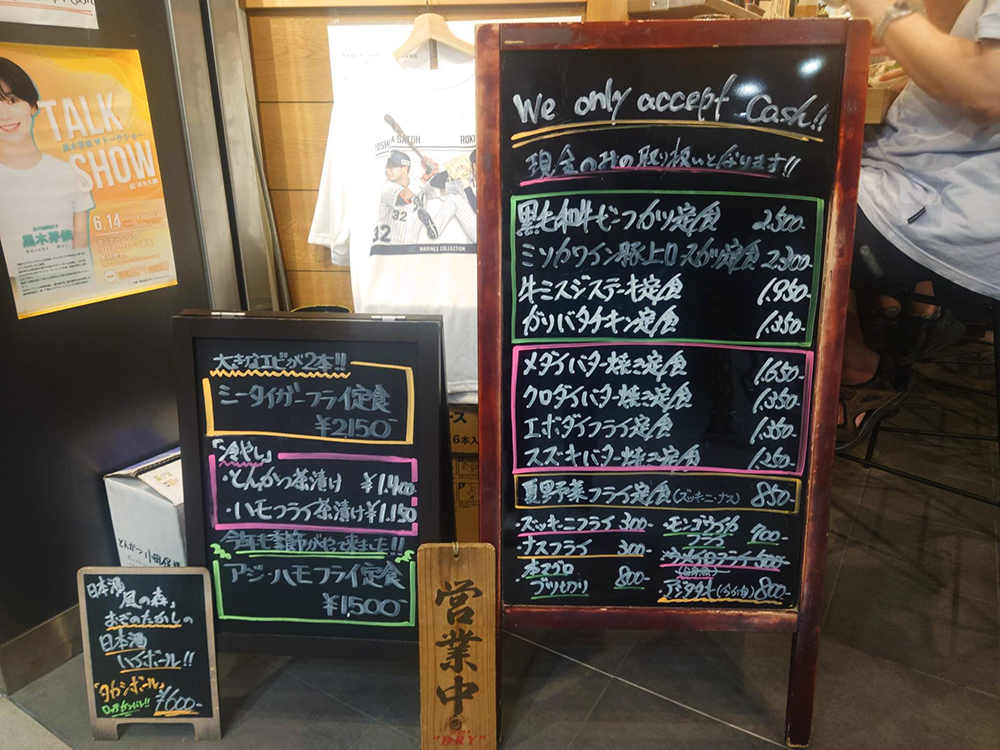 TALK
SHOW
6.14
SATOH
ROKI
32
32
MARINES COLLECTION
6本入
We only accept Cash!!
現金のみの取り扱いとなります!!
黒毛和牛ビーフカツ定食 2,500-
ミソカワイン豚上ロースカツ定食 2,300-
牛ミスジステーキ定食 1,950-
ガリバタチキン定食 1,350-
メダイバター焼き定食 1,650-
クロダイバター焼き定食 1,350-
エボダイフライ定食 1,350-
スズキバター焼き定食 1,250-
夏野菜フライ定食(ズッキーニ・ナス) 850-
ズッキーニフライ 300-
ナスフライ 300-
本マグロ
ブツ切り 800-
・モンゴウイカ
フライ 900-
アジタタキ 800-
大きなエビが2本!!
シータイガーフライ定食
¥2,150-
「冷やし」
・とんかつ茶漬け ¥1,400-
・ハモフライ茶漬け ¥1,150
今年も季節がやって来ました!!
アジ・ハモフライ定食
¥1,500-
日本酒
風の森」
おぎのたかしの
日本酒
ハイボール!!
「タカシボール」
¥600-
営業中
"DRY"